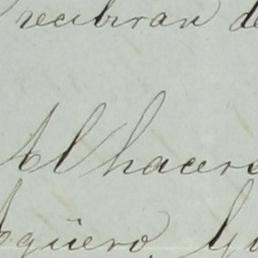 recibiran de
Al hacers
güero,